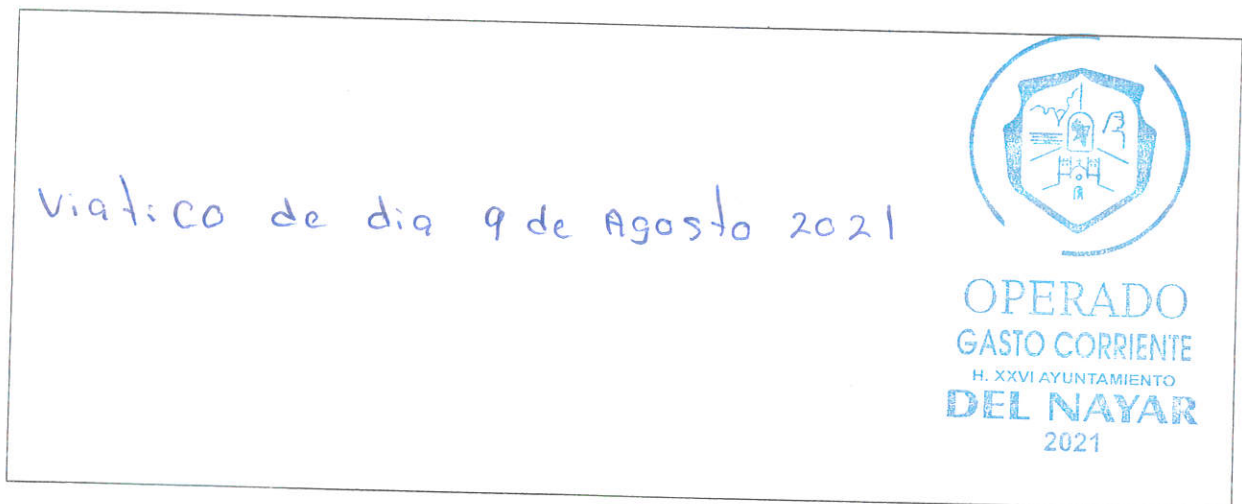 Viatico de dia 9 de Agosto 2021
OPERADO
GASTO CORRIENTE
H. XXVI AYUNTAMIENTO
DEL NAYAR
2021